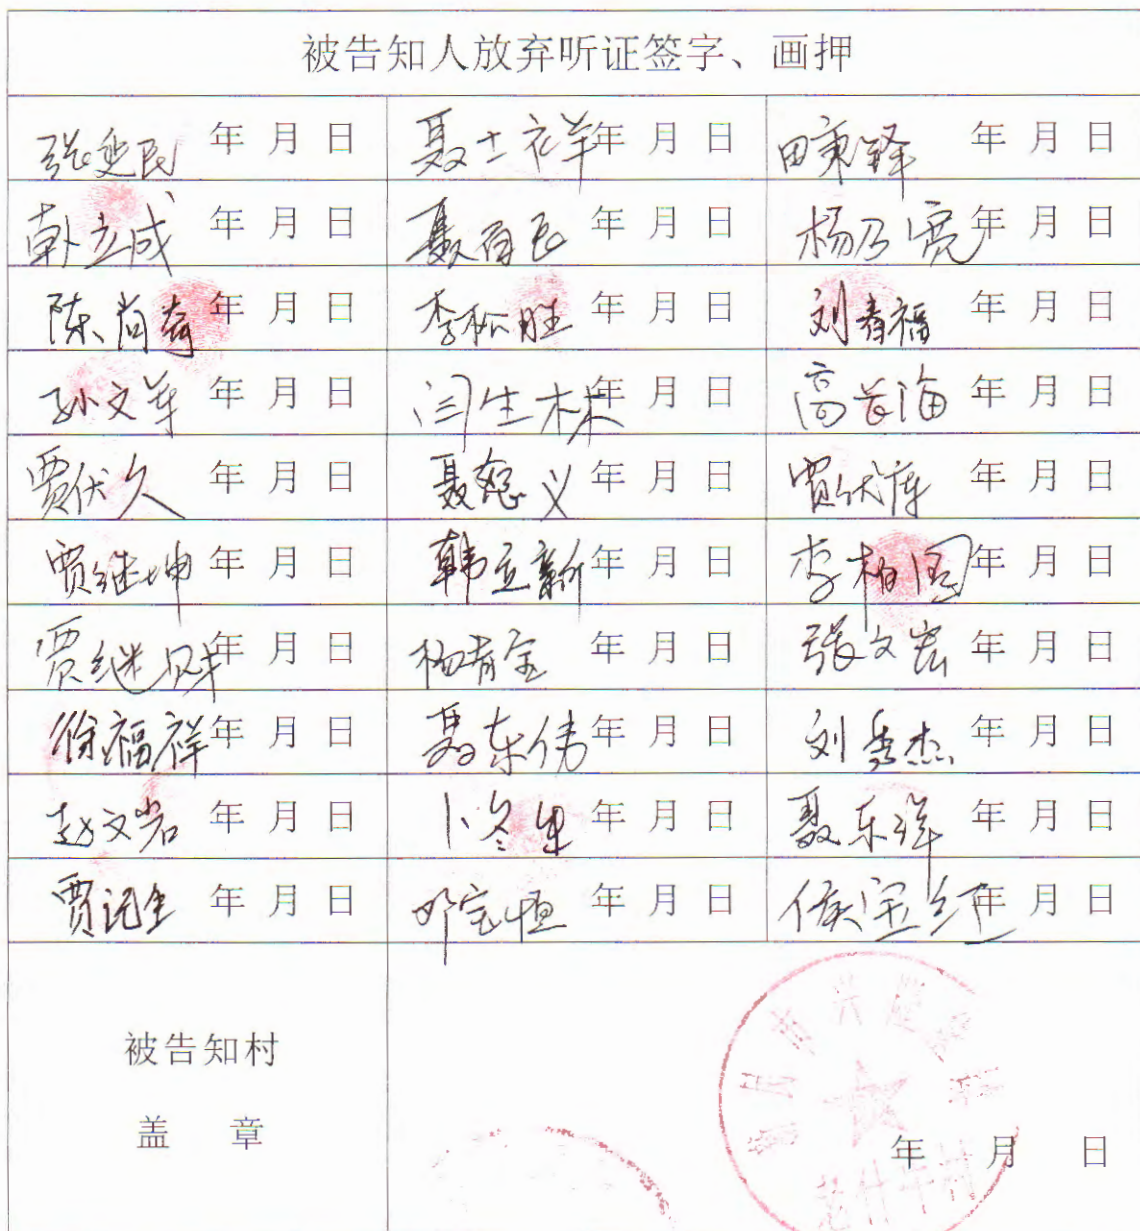 被告知人放弃听证签字、画押
张延民 年 月 日 聂士祥 年 月 日 田秉铎 年 月 日
韩立成 年 月 日 聂有民 年 月 日 杨乃宽 年 月 日
陈尚奇 年 月 日 李松胜 年 月 日 刘春福 年 月 日
孙文革 年 月 日 闫生林 年 月 日 高首海 年 月 日
贾伏久 年 月 日 聂怒义 年 月 日 贾伏库 年 月 日
贾继坤 年 月 日 韩立新 年 月 日 李柏国 年 月 日
贾继财 年 月 日 杨青宝 年 月 日 张文宏 年 月 日
徐福祥 年 月 日 聂东伟 年 月 日 刘秀杰 年 月 日
赵文岩 年 月 日 卜冬生 年 月 日 聂东洋 年 月 日
贾记全 年 月 日 邓宝恒 年 月 日 侯宝红 年 月 日
被告知村
盖 章
年 月 日